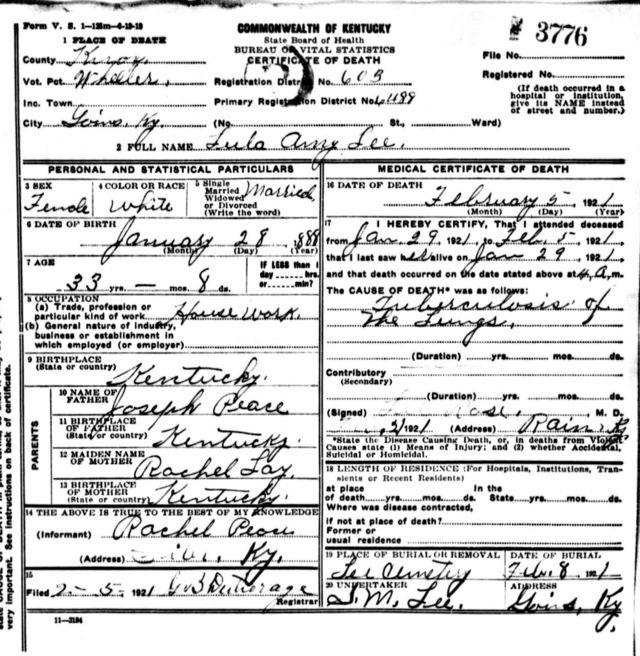 Form V. S. 1—125m—4-19-19
COMMONWEALTH OF KENTUCKY
State Board of Health
BUREAU OF VITAL STATISTICS
CERTIFICATE OF DEATH
3776
1 PLACE OF DEATH
County Knox
Vot. Pct. Wheeler
Inc. Town
City Goins, Ky. (No. St., Ward)
Registration District No. 603
Primary Registration District No.
File No.
Registered No.
(If death occurred in a
hospital or institution,
give its NAME instead
of street and number.)
2 FULL NAME Lula Amy Lee.
PERSONAL AND STATISTICAL PARTICULARS
3 SEX Female
4 COLOR OR RACE White
5 Single
Married
Widowed
or Divorced
(Write the word) Married
6 DATE OF BIRTH January 28 1888
(Month) (Day) (Year)
7 AGE 33 yrs. — mos. 8 ds.
IF LESS than 1
day hrs.
or min?
8 OCCUPATION
(a) Trade, profession or
particular kind of work House work.
(b) General nature of industry,
business or establishment in
which employed (or employer)
9 BIRTHPLACE
(State or country) Kentucky.
PARENTS
10 NAME OF
FATHER Joseph Peace
11 BIRTHPLACE
OF FATHER
(State or country) Kentucky
12 MAIDEN NAME
OF MOTHER Rachel Lay
13 BIRTHPLACE
OF MOTHER
(State or country) Kentucky.
14 THE ABOVE IS TRUE TO THE BEST OF MY KNOWLEDGE
(Informant) Rachel Peace
(Address) Ky.
15
Filed 2-5-1921
Registrar
11—3184
MEDICAL CERTIFICATE OF DEATH
16 DATE OF DEATH
February 5, 1921
(Month) (Day) (Year)
17 I HEREBY CERTIFY, That I attended deceased
from Jan. 29, 1921, to Feb. 5, 1921,
that I last saw alive on Jan 29, 1921,
and that death occurred on the date stated above at 4 a.m.
The CAUSE OF DEATH* was as follows:
Tuberculosis of
The Lungs.
(Duration) yrs. mos. ds.
Contributory
(Secondary)
(Duration) yrs. mos. ds.
(Signed) M. D.
1921 (Address) Rain Ky
*State the Disease Causing Death, or, in deaths from Violent
Causes state (1) Means of Injury; and (2) whether Accidental,
Suicidal or Homicidal.
18 LENGTH OF RESIDENCE (For Hospitals, Institutions, Tran-
sients or Recent Residents)
at place In the
of death yrs. mos. ds. State yrs. mos. ds.
Where was disease contracted,
if not at place of death?
Former or
usual residence
19 PLACE OF BURIAL OR REMOVAL DATE OF BURIAL
Lee Cemetery Feb. 8, 1921
20 UNDERTAKER ADDRESS
S. M. Lee. Goins, Ky.
very important. See instructions on back of certificate.